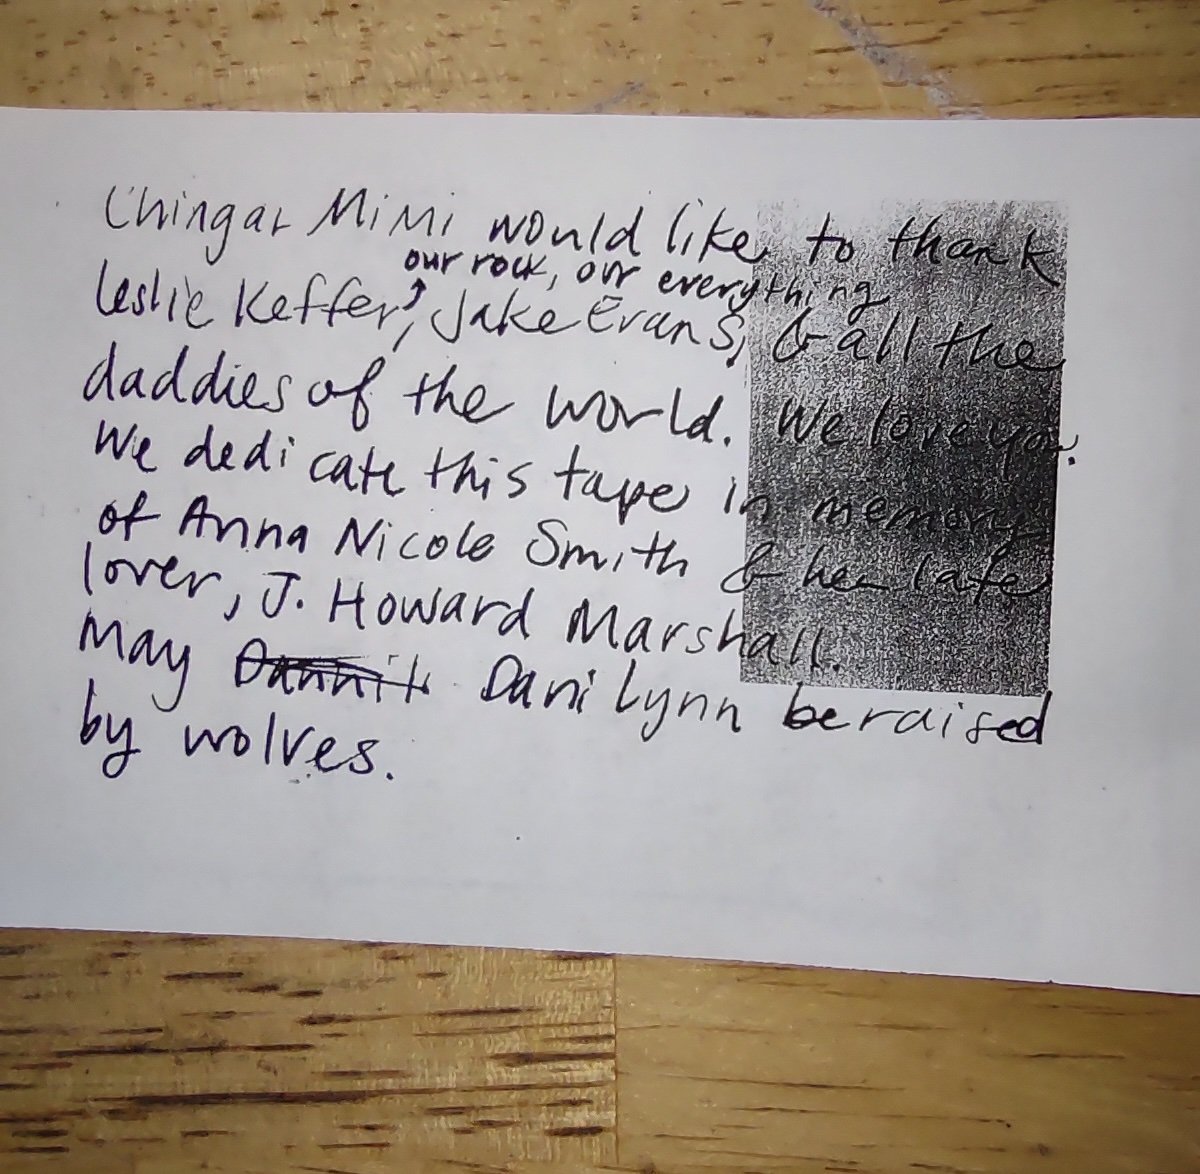 Chingar MiMi would like to thank
our rock, our everything
Leslie Keffer, Jake Evans, & all the
daddies of the world. We love you.
We dedicate this tape in memory
of Anna Nicole Smith & her late
lover, J. Howard Marshall.
May Dani Lynn be raised
by wolves.